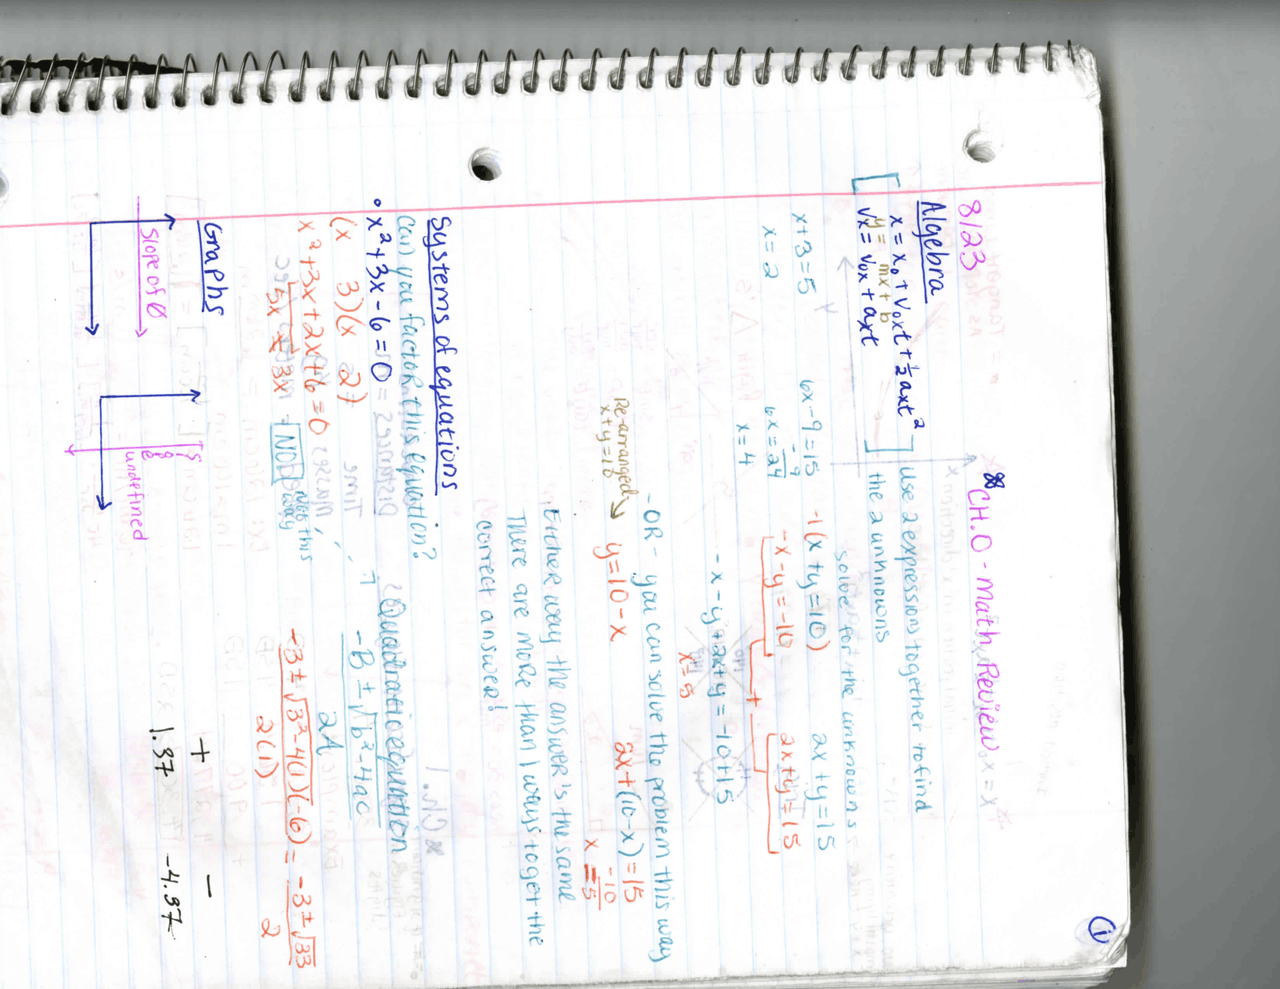 i
8/23
* CH.0 - Math Review
Algebra
x = x₀ + v₀xt + ½axt²
y = mx + b
Vx = V₀x + axt
Use 2 expressions together to find
the 2 unknowns
solve for the unknowns
x+3=5
x = 2
6x-9=15
-9
6x=24
x=4
-1(x+y=10)
2x+y=15
-x-y=-10
+
2x+y=15
-x-y+2x+y=-10+15
x=5
-OR- you can solve the problem this way
Re-arranged
x+y=10
y=10-x
2x+(10-x)=15
-10
x=5
Either way the answer is the same
There are more than 1 ways to get the
correct answer!
Systems of equations
Can you factor this equation?
• x²+3x-6=0
(x 3)(x 2)
x²+3x+2x+6=0
5x ≠ 3x
- NO!
Not this
way
Quadratic equation
-B ± √b²-4ac
2A
-3 ± √3²-4(1)(-6) = -3 ± √33
2(1)
2
+
-
1.37
-4.37
Graphs
Slope of 0
undefined